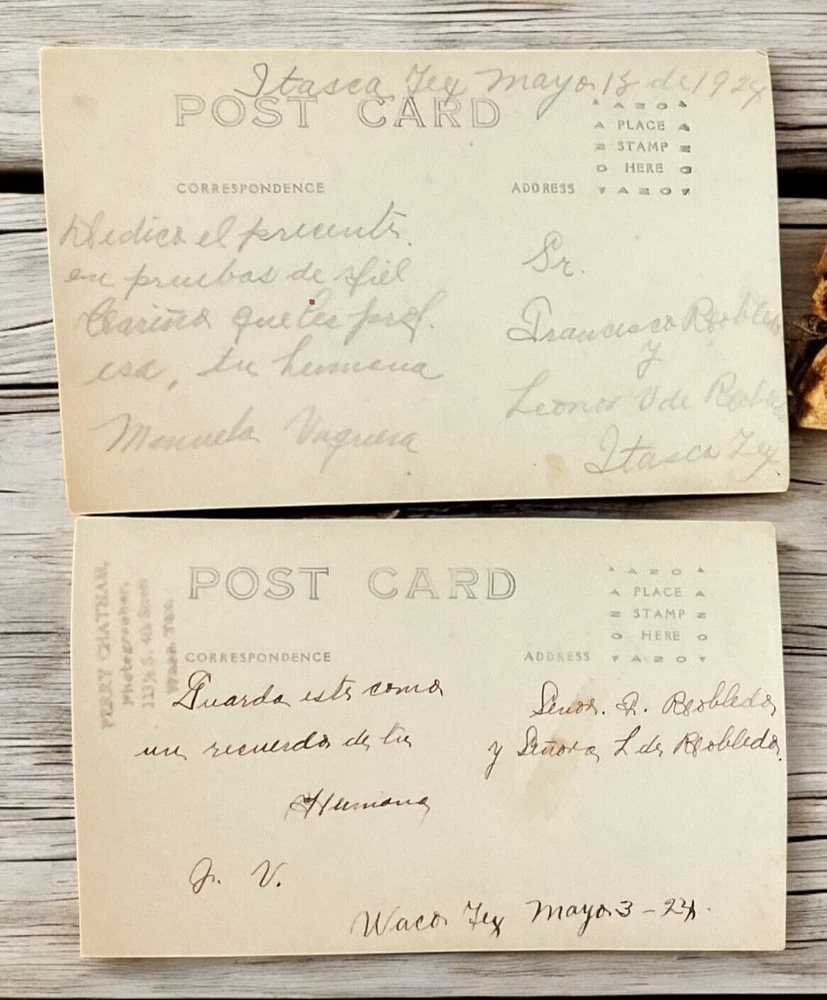 Itasca Tex Mayo 18 de 1924
POST CARD
AZO
PLACE
STAMP
HERE
AZO
CORRESPONDENCE
ADDRESS
Dedico el precente
en pruebas de fiel
Cariño que les prof.
esa, tu hermana
Manuela Vaquera
Sr.
Francisco Robledo
y
Leonor V de Robledo
Itasca Tex
PERRY CHATHAM,
Photographer,
113½ S. 4th Street
Waco, Tex.
POST CARD
AZO
PLACE
STAMP
HERE
AZO
CORRESPONDENCE
ADDRESS
Guarda este como
un recuerdo de tu
Humana
J. V.
Señor. F. Robledo
y Señora L de Robledo.
Waco Tex Mayo 3-24.